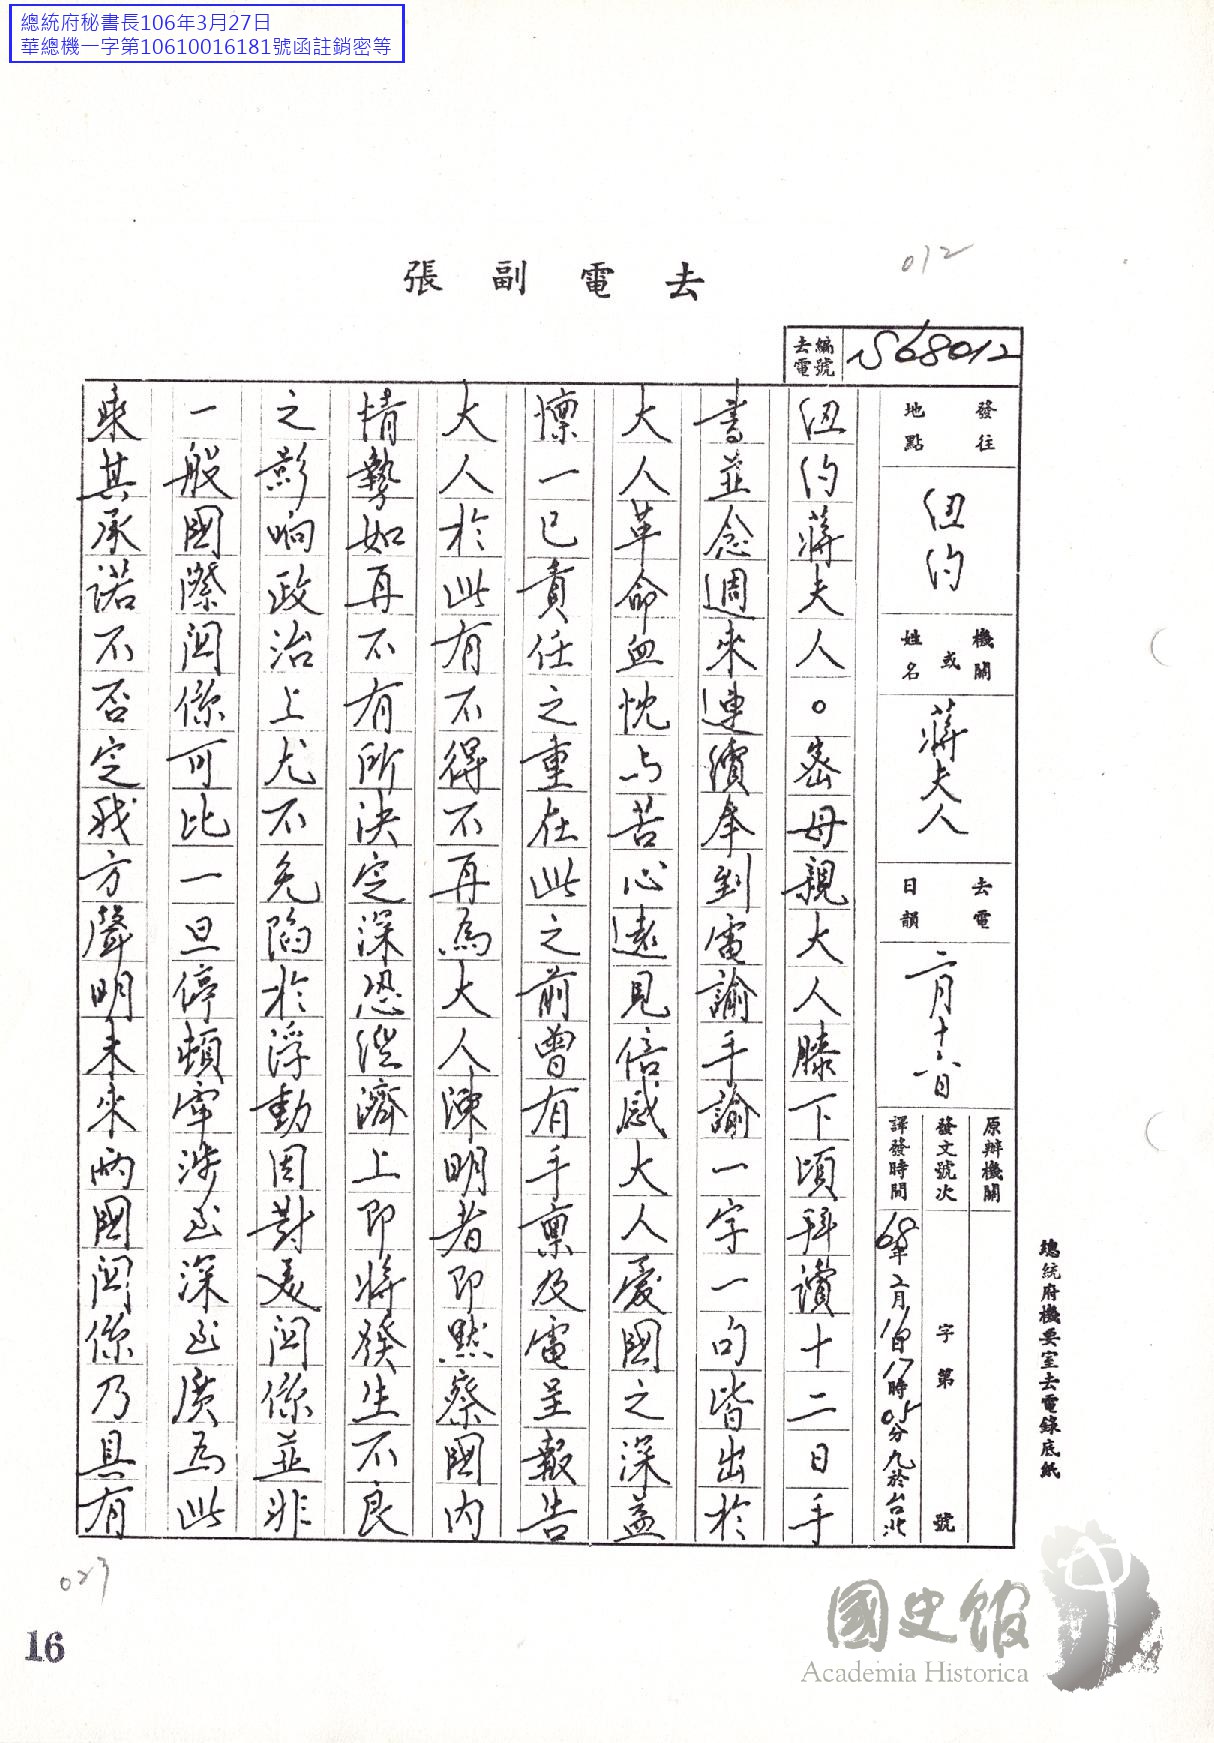 總統府秘書長106年3月27日
華總機一字第10610016181號函註銷密等
012
去電副張
去電編號
S68012
發往地點
紐約
機關或姓名
蔣夫人
去電日韻
二月十六日
原辦機關
發文號次
字第號
譯發時間
68年2月16日17時05分九於台北
紐約蔣夫人。密母親大人膝下頃拜讀十二日手
書並念週來連續奉到電諭手諭一字一句皆出於
大人革命血忱与苦心遠見倍感大人愛國之深益
懍一已責任之重在此之前曾有手禀及電呈報告
大人於此有不得不再為大人陳明者即默察國內
情勢如再不有所決定深恐經濟上即將發生不良
之影响政治上尤不免陷於浮動因對美関係並非
一般國際関係可比一旦停頓牽涉至深至廣為此
乘其承諾不否定我方聲明未來兩國関係乃具有
總統府機要室去電錄底紙
027
16
國史館
Academia Historica